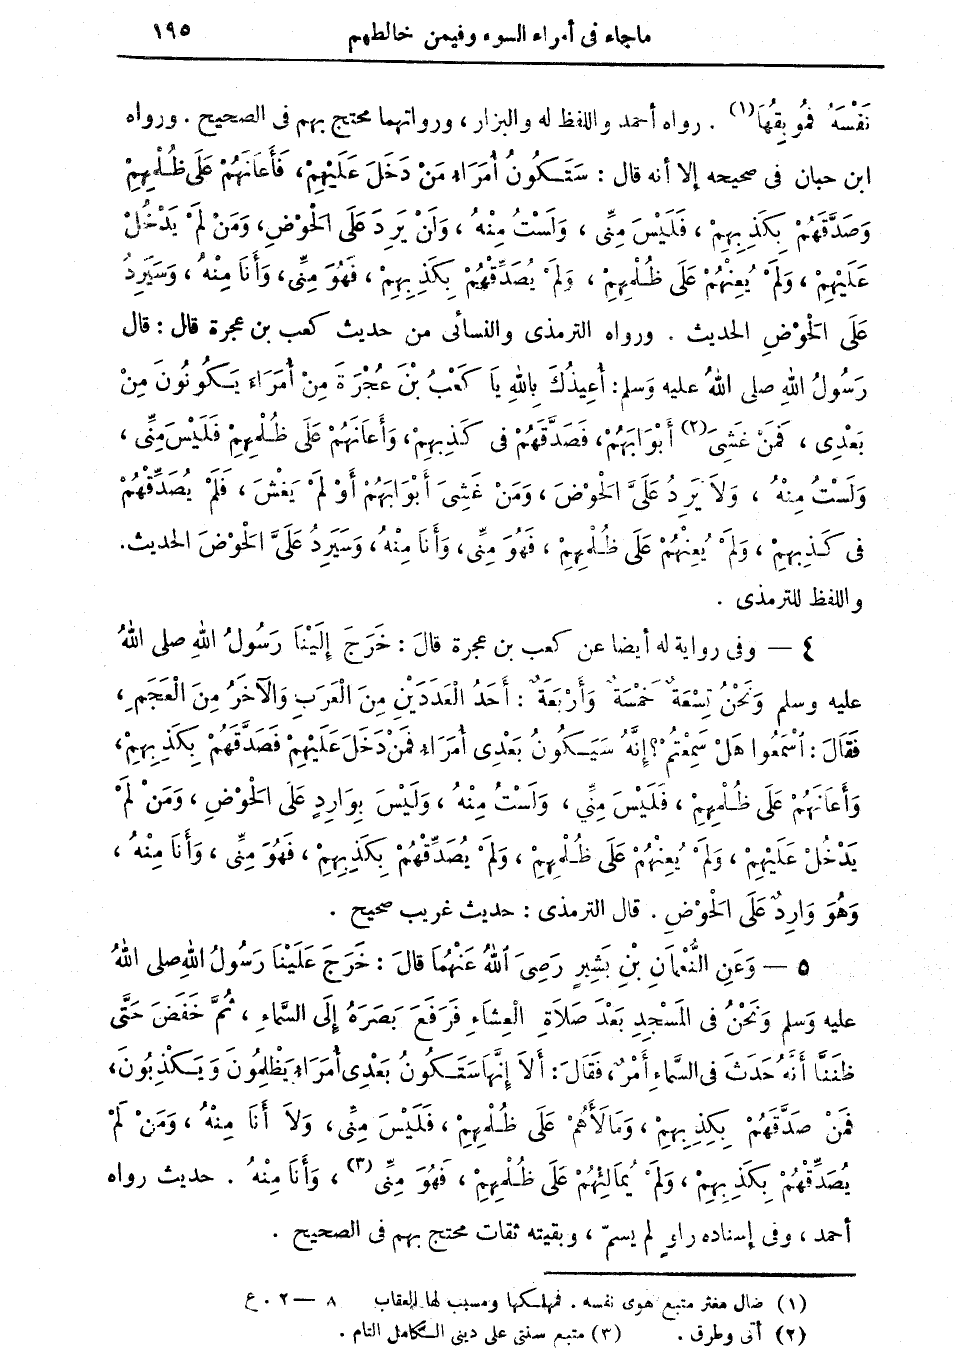 ماجاء فى أمراء السوء وفيمن خالطهم ١٩٥
نَفْسَهُ فَمُوبِقُهَا (١) . رواه أحمد واللفظ له والبزار ، ورواتهما محتج بهم فى الصحيح . ورواه
ابن حبان فى صحيحه إلا أنه قال : سَتَكُونُ أُمَرَاءِ مَنْ دَخَلَ عَلَيْهِمْ، فَأَعَانَهُمْ عَلَى ظُلْمِهِمْ
وَصَدَّقَهُمْ بِكَذِبِهِمْ ، فَلَيْسَ مِنِّى ، وَلَسْتُ مِنْهُ ، وَلَنْ يَرِدَ عَلَى الْحَوْضِ، وَمَنْ لَمْ يَدْخُلْ
عَلَيْهِمْ ، وَلَمْ يُعِنْهُمْ عَلَى ظُلْمِهِمْ ، وَلَمْ يُصَدِّقْهُمْ بِكَذِبِهِمْ ، فَهُوَ مِنِّى، وَأَنَا مِنْهُ ، وَسَيَرِدُ
عَلَى الْحَوْضِ الحديث . ورواه الترمذى والنسائى من حديث كعب بن عجرة قال : قال
رَسُولُ اللهِ صلى اللهُ عليه وَسلم : أُعِيذُكَ بِاللهِ يَا كَعْبُ بْنَ عُجْرَةَ مِنْ أُمَرَاءَ يَكُونُونَ مِنْ
بَعْدِى ، فَمَنْ غَشِىَ (٢) أَبْوَابَهُمْ، فَصَدَّقَهُمْ فى كَذِبِهِمْ، وَأَعَانَهُمْ عَلَى ظُلْمِهِمْ فَلَيْسَ مِنِّى ،
وَلَسْتُ مِنْهُ ، وَلاَ يَرِدُ عَلَىَّ الْحَوْضَ ، وَمَنْ غَشِىَ أَبْوَابَهُمْ أَوْ لَمْ يَغْشَ ، فَلَمْ يُصَدِّقْهُمْ
فى كَذِبِهِمْ ، وَلَمْ يُعِنْهُمْ عَلَى ظُلْمِهِمْ ، فَهُوَ مِنِّى، وَأَنَا مِنْهُ ، وَسَيَرِدُ عَلَىَّ الْحَوْضَ الحديث.
واللفظ للترمذى .
٤ — وفى رواية له أيضا عن كعب بن عجرة قالَ : خَرَجَ إِلَيْنَا رَسُولُ اللهِ صلى اللهُ
عليه وسلم وَنَحْنُ تِسْعَةٌ خَمْسَةٌ وَأَرْبَعَةٌ : أَحَدُ الْعَدَدَيْنِ مِنَ الْعَرَبِ وَالْآخَرُ مِنَ الْعَجَمِ ،
فَقَالَ : اسْمَعُوا هَلْ سَمِعْتُمْ؟ إِنَّهُ سَيَكُونُ بَعْدِى أُمَرَاءِ فَمَنْ دَخَلَ عَلَيْهِمْ فَصَدَّقَهُمْ بِكَذِبِهِمْ،
وَأَعَانَهُمْ عَلَى ظُلْمِهِمْ ، فَلَيْسَ مِنِّي ، وَلَسْتُ مِنْهُ ، وَلَيْسَ بِوَارِدٍ عَلَى الْحَوْضِ ، وَمَنْ لَمْ
يَدْخُلْ عَلَيْهِمْ ، وَلَمْ يُعِنْهُمْ عَلَى ظُلْمِهِمْ ، وَلَمْ يُصَدِّقْهُمْ بِكَذِبِهِمْ ، فَهُوَ مِنِّى ، وَأَنَا مِنْهُ ،
وَهُوَ وَارِدٌ عَلَى الْحَوْضِ . قال الترمذى : حديث غريب صحيح .
٥ — وَعَنِ النُّعْمَانِ بْنِ بَشِيرٍ رَضِىَ اللهُ عَنْهُمَا قالَ : خَرَجَ عَلَيْنَا رَسُولُ اللهِ صلى اللهُ
عليه وَسلم وَنَحْنُ فى الْمَسْجِدِ بَعْدَ صَلَاةِ الْعِشَاءِ فَرَفَعَ بَصَرَهُ إِلَى السَّمَاءِ ، ثُمَّ خَفَضَ حَتَّى
ظَنَنَّا أَنَّهُ حَدَثَ فى السَّمَاءِ أَمْرٌ ، فَقَالَ : أَلاَ إِنَّهَا سَتَكُونُ بَعْدِى أُمَرَاءِ يَظْلِمُونَ وَيَكْذِبُونَ،
فَمَنْ صَدَّقَهُمْ بِكَذِبِهِمْ ، وَمَالَأَهُمْ عَلَى ظُلْمِهِمْ ، فَلَيْسَ مِنِّى، وَلاَ أَنَا مِنْهُ ، وَمَنْ لَمْ
يُصَدِّقْهُمْ بِكَذِبِهِمْ ، وَلَمْ يُمَالِئْهُمْ عَلَى ظُلْمِهِمْ ، فَهُوَ مِنِّى (٣) ، وَأَنَا مِنْهُ . حديث رواه
أحمد ، وفى إسناده راوٍ لم يسمّ ، وبقيته ثقات محتج بهم فى الصحيح .
(١) ضال مغتر متبع هوى نفسه . فمهلكها ومسبب لها العقاب ٨ — ٢ . ع
(٢) أتى وطرق . (٣) متبع سنتى على دينى الكامل التام .